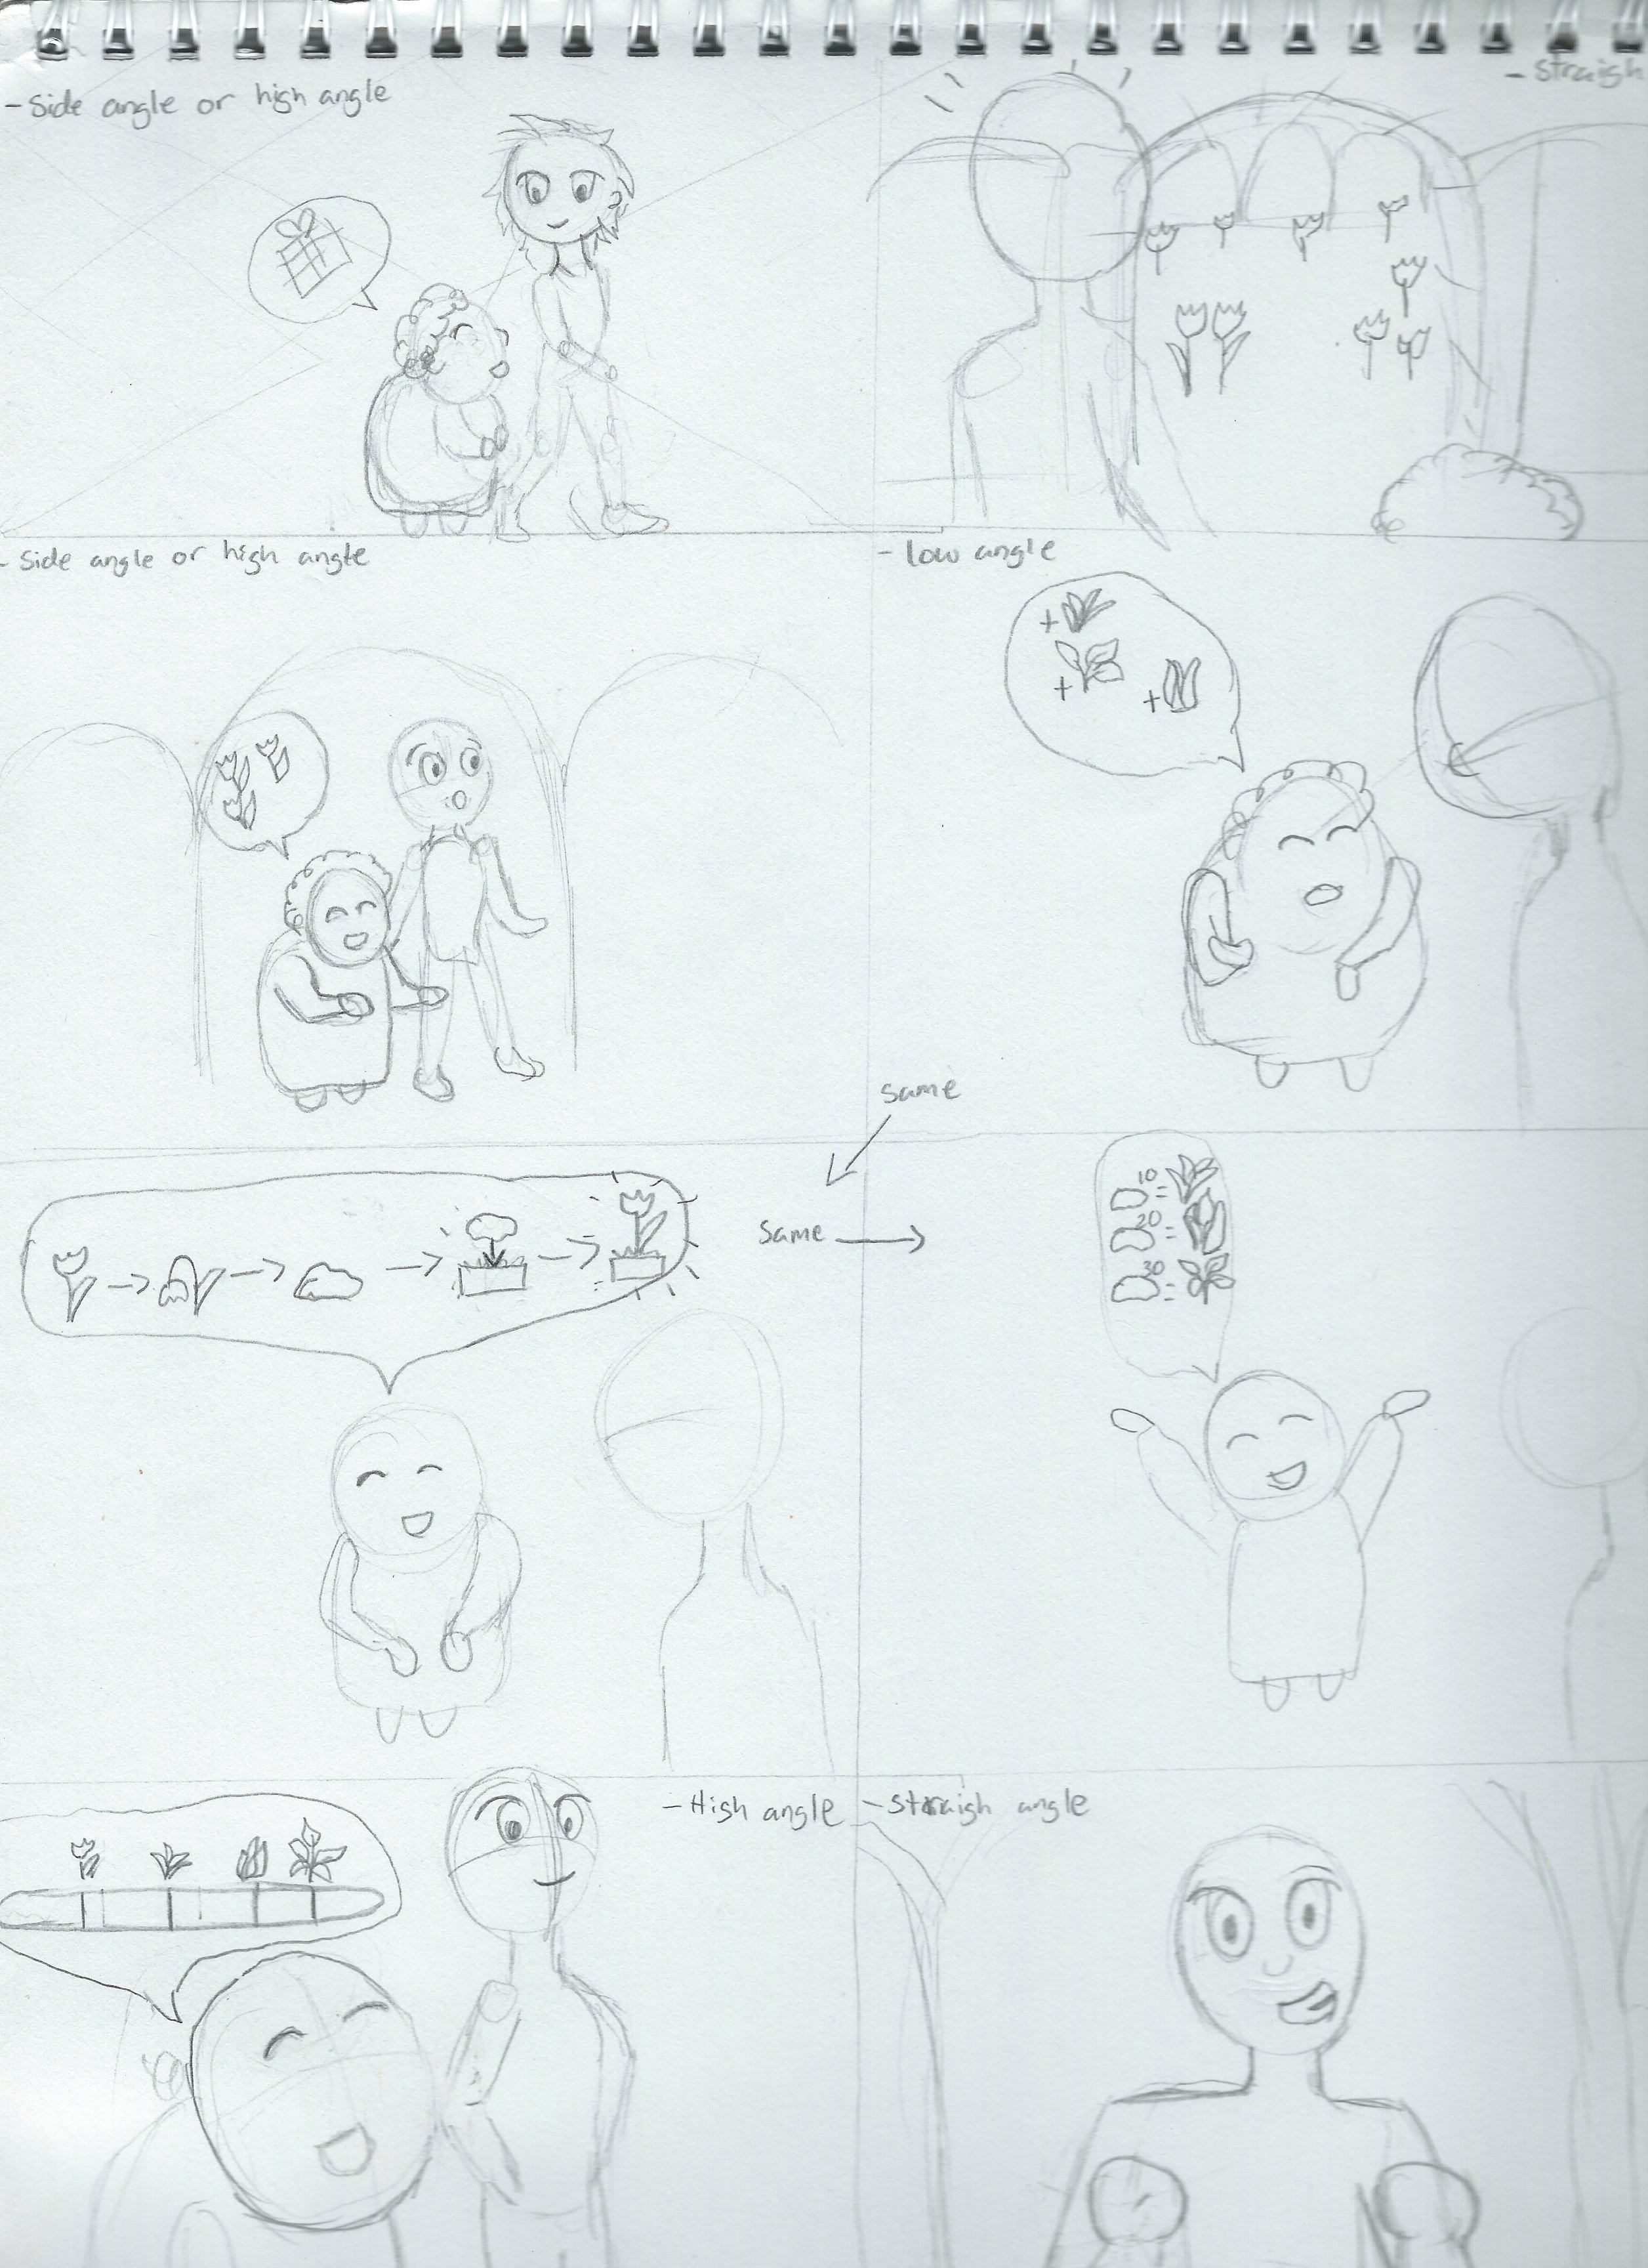 - Side angle or high angle
- Straigh
- Side angle or high angle
- low angle
same
same
10
=
20
=
30
=
- High angle
- Straigh angle